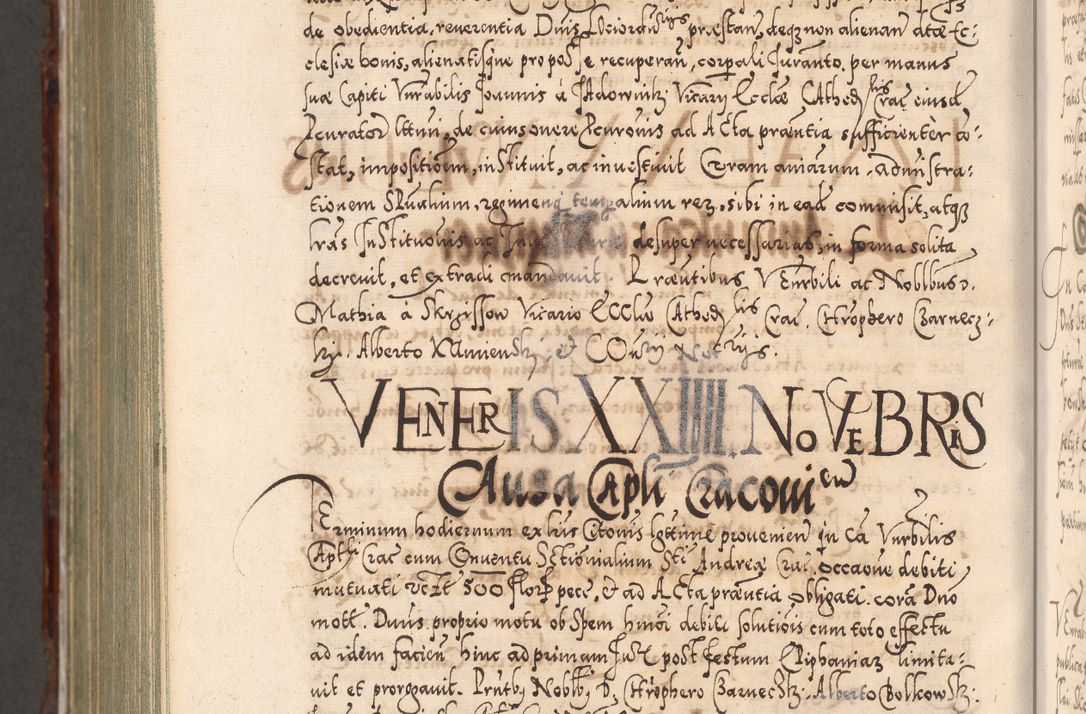 de obedientia, reverentia Dnis Locioranrijs præstan, deq; non alienan dtæ Ec:
clesiæ bonis, alienatisque pro posse recuperan, corpali Juranto. per manus
suæ Capiti Vnrabilis Joannis à Jadowniki Vicarij Eccliæ Cathedlis Crac eiusd
Pcurator lttmi, de cuius onere Pcuronis ad Acta præntia sufficienter co:
stat, impositioem, instituit, ac investivit Curam aniarum, Administra:
tionem Spualium, regimenq temporalium rez, sibi in ead commisit, atq3
lras Institutionis ac desuper necessarias, in forma solita
decrevit, et extradi mandavit. Præntibus Venrbili ac Noblbus D.
Mathia à Skrzissow Vicario Eccliæ Cathedlis Crac. Chrophero Czarnecz:
ki. Alberto Kamiensky et Notrijs.
VENERIS XXIIII. NOVEBRIS
Causa Capli Cracovien
Terminum hodiernum ex lris Citonis lgttime provenien in Ca Vnrbilis
Capli Crac cum Conventu Sctimonialium Sti Andreæ Crac. occaone debiti
mutuati 500 flor pece, & ad Acta præntia obligati. corã Dno
mott. Dnus. proprio motu ob Spem hmoi debiti solutiois cum toto effectu
ad idem facien hinc ad primam Jur post festum Epiphaniaz limita:
vit et prorogavit. Prntbs Noblbs D. Chrophero Czarnecski. Alberto Bolkowsk: